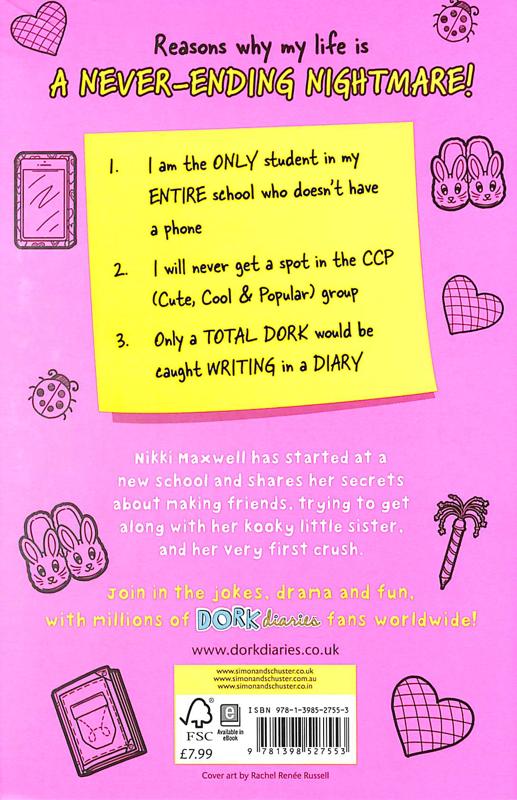 Reasons why my life is
A NEVER-ENDING NIGHTMARE!
1. I am the ONLY student in my
ENTIRE school who doesn't have
a phone
2. I will never get a spot in the CCP
(Cute, Cool & Popular) group
3. Only a TOTAL DORK would be
caught WRITING in a DIARY
Nikki Maxwell has started at a
new school and shares her secrets
about making friends, trying to get
along with her kooky little sister,
and her very first crush.
Join in the jokes, drama and fun,
with millions of DORK diaries fans worldwide!
www.dorkdiaries.co.uk
www.simonandschuster.co.uk
www.simonandschuster.com.au
www.simonandschuster.co.in
FSC
£7.99
e
Available in
eBook
ISBN 978-1-3985-2755-3
9 781398 527553
Cover art by Rachel Renée Russell